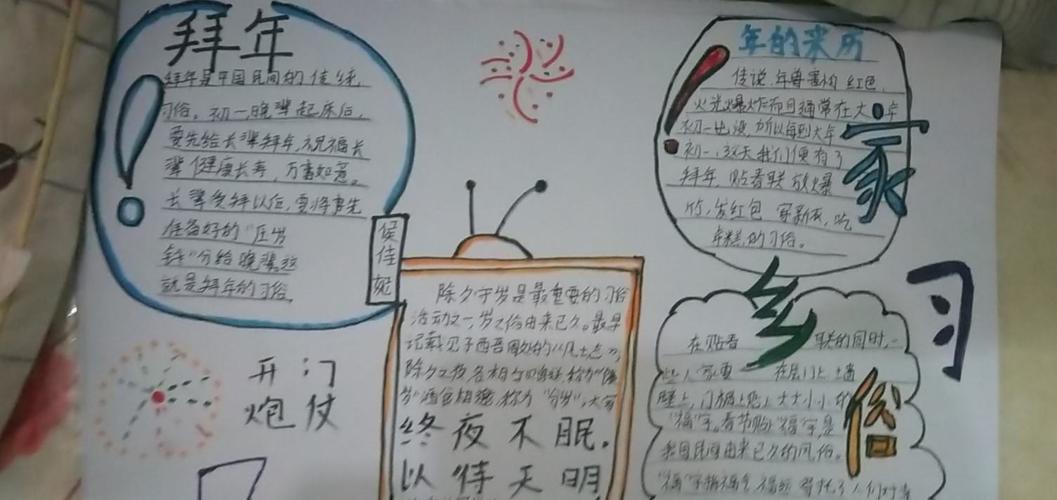 拜年
拜年是中国民间的传统
习俗。初一,晚辈起床后,
要先给长辈拜年,祝福长
辈健康长寿,万事如意。
长辈受拜以后,要将事先
准备好的“压岁
钱”分给晚辈,这
就是拜年的习俗。
侯佳妮
开门
炮仗
除夕守岁是最重要的习俗
活动之一,守岁之俗由来已久。最早
记载见于西晋周处的《风土志》,
除夕之夜各相与赠送,称为“馈
岁”酒食相邀,称为“别岁”,大家
终夜不眠,
以待天明
年的来历
传说,年兽害怕红色,
火光爆炸而且通常在大年
初一出没,所以每到大年
初一,这天我们便有了
拜年,贴春联,放爆
竹,发红包,穿新衣,吃
年糕的习俗。
家
乡
习
俗
在贴春联的同时,一
些人家要在屋门上,墙
壁上,门楣上贴上大大小小的
“福”字。春节贴“福”字,是
我国民间由来已久的风俗。
“福”字指福气,福运,寄托了人们对幸